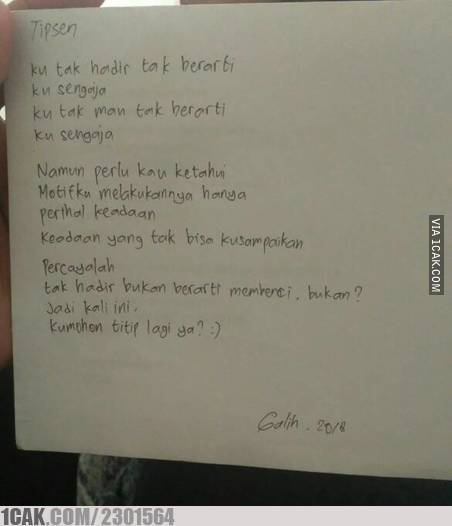 Tipsen
ku tak hadir tak berarti
ku sengaja
ku tak mau tak berarti
ku sengaja
Namun perlu kau ketahui
Motifku melakukannya hanya
perihal keadaan
Keadaan yang tak bisa kusampaikan
Percayalah
tak hadir bukan berarti membenci, bukan?
Jadi kali ini,
kumohon titip lagi ya? :)
Galih. 2018
VIA 1CAK.COM
1CAK.COM/2301564